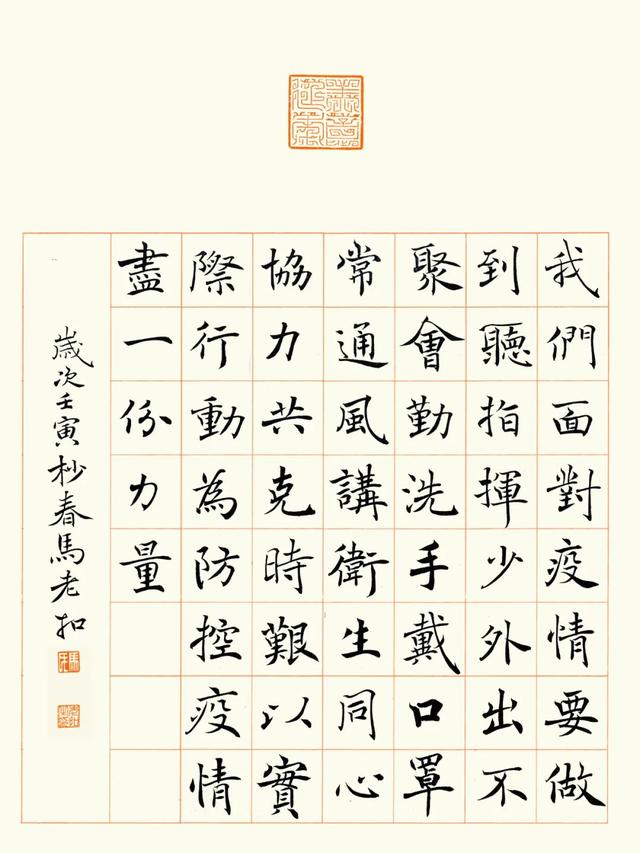 我們面對疫情要做
到聽指揮少外出不
聚會勤洗手戴口罩
常通風講衛生同心
協力共克時艱以實
際行動為防控疫情
盡一份力量
歲次壬寅杪春馬老扣